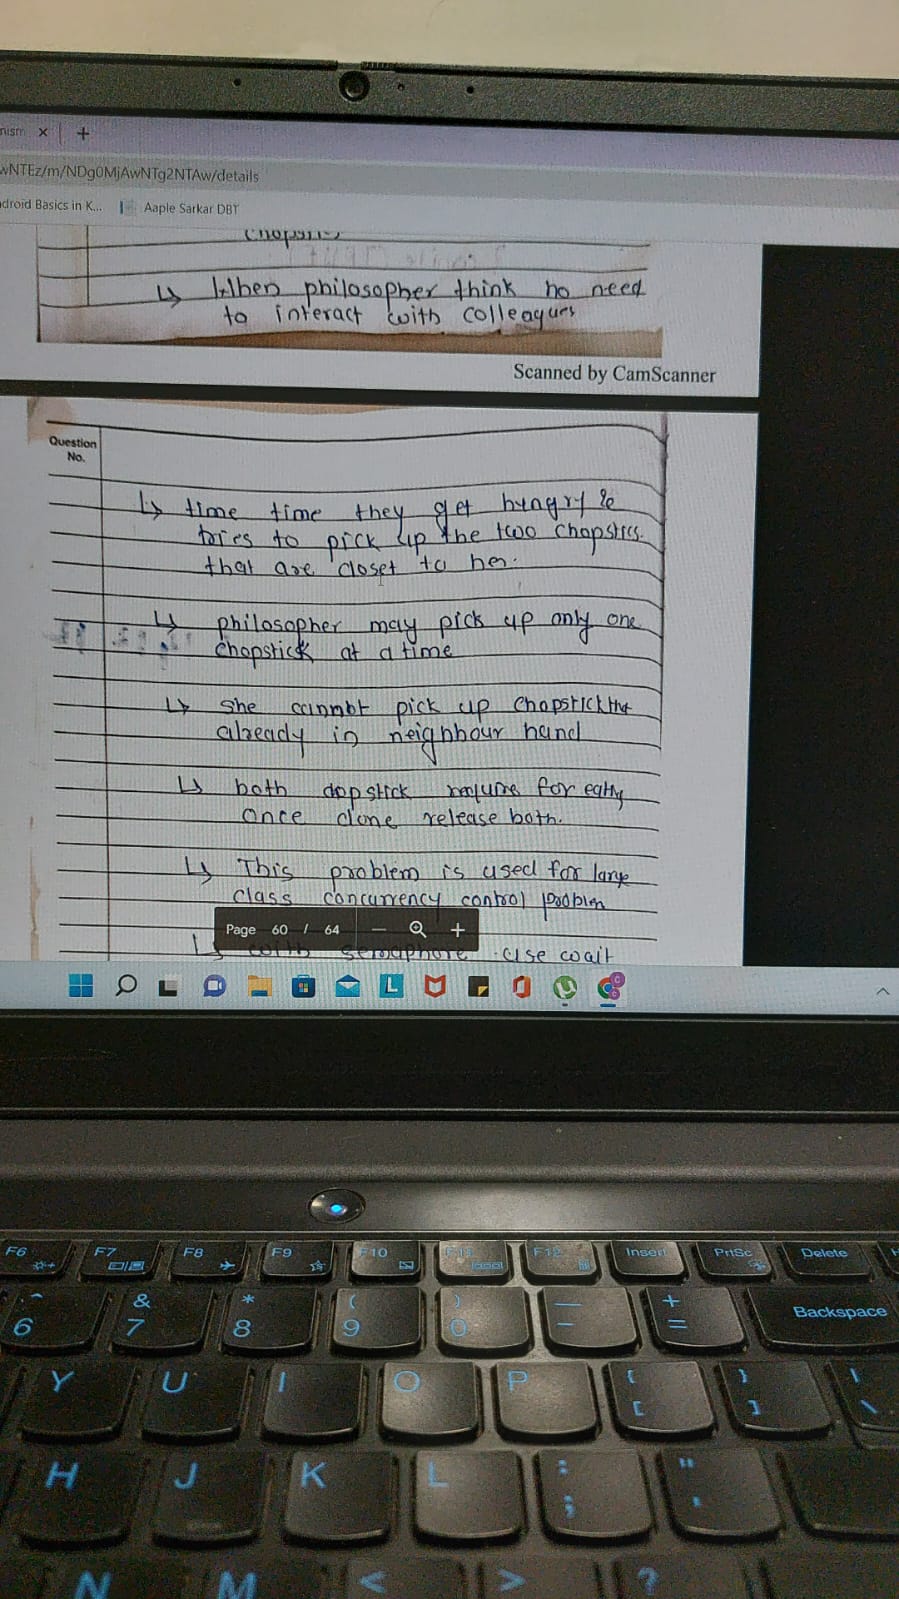 nism × +
wNTEz/m/NDg0MjAwNTg2NTAw/details
droid Basics in K... Aaple Sarkar DBT
↳ When philosopher think no need
to interact with colleagues
Scanned by CamScanner
Question
No.
↳ time time they get hungry &
tries to pick up the two chopstics.
that are closet to her.
↳ philosopher may pick up only one
chopstick at a time
↳ she cannot pick up chopstick that
already in neighbour hand
↳ both chopstick require for eating
once done release both.
↳ This problem is used for large
class concurrency control problem
Page 60 / 64 — +
↳ with semaphore use wait
L
F6 F7 F8 F9 F10 F11 F12 Insert PrtSc Delete
^ & * ( ) _ +
6 7 8 9 0 - = Backspace
Y U I O P { [ } ] | \
H J K L : ; " '
N M < > ?